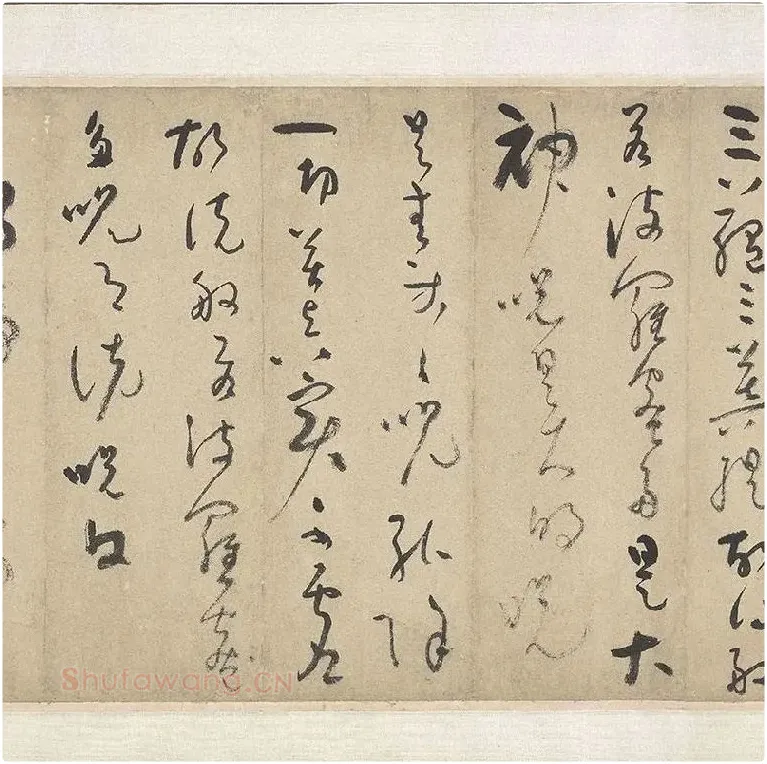 三藐三菩提故知般
若波羅蜜多是大
神呪是大明呪
是無等々呪能除
一切苦真實不虛
故說般若波羅蜜
多呪即說呪曰
Shufawang.CN